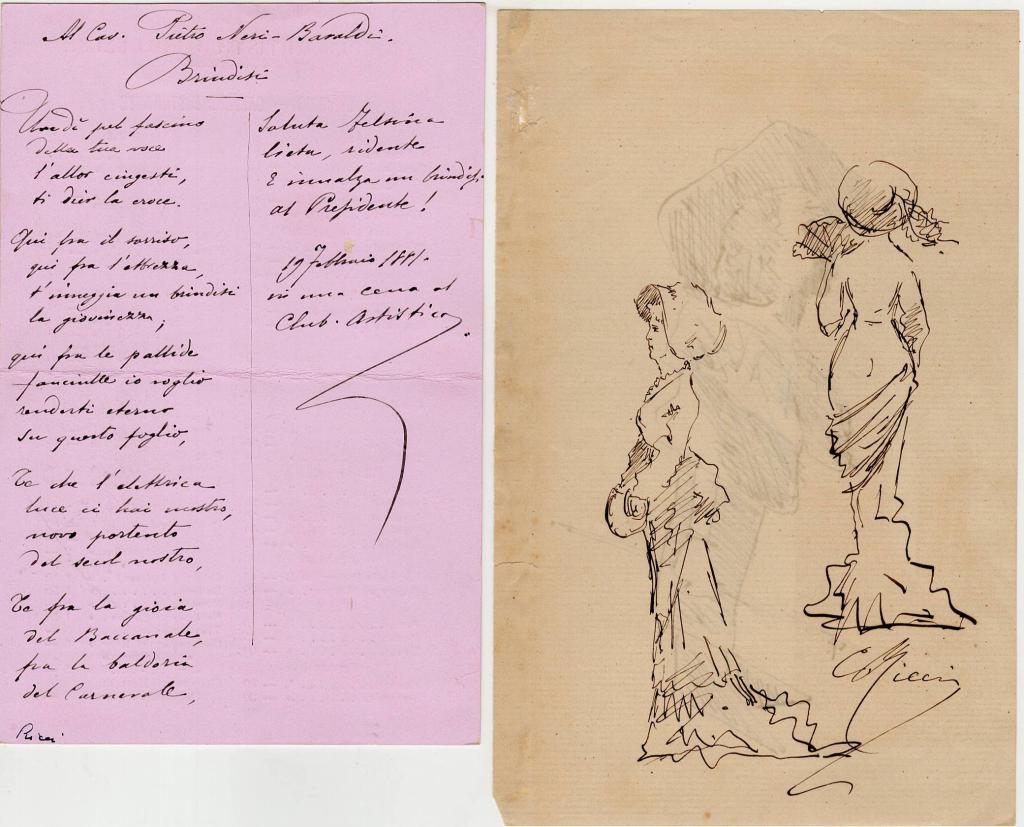 Al Cav. Pietro Neri-Baraldi.
Brindisi
Un dì pel fascino
della tua voce
l'allor cingesti,
ti dier la croce.
Qui fra il sorriso,
qui fra l'ebrezza,
t'inneggia un brindisi
la giovinezza;
qui fra le pallide
fanciulle io voglio
renderti eterno
su questo foglio,
Te che l'elettrica
luce ci hai mostro,
novo portento
del secol nostro,
Te fra la gioia
del Baccanale,
fra la baldoria
del Carnevale,
Saluta Felsina
lieta, ridente
E innalza un brindisi
al Presidente!
19 Febbraio 1881.
in una cena al
Club. Artistico.
Ricci
Ricci